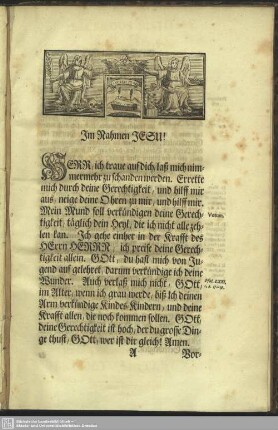 Im Nahmen JESU!
HERR, ich traue auf dich, laß mich nim-
mermehr zu schanden werden. Errette
mich durch deine Gerechtigkeit, und hilff mir
aus, neige deine Ohren zu mir, und hilff mir.
Mein Mund soll verkündigen deine Gerech-
tigkeit, täglich dein Heyl, die ich nicht alle zeh-
len kan. Ich gehe einher in der Krafft des
HErrn HERRN, ich preise deine Gerech-
tigkeit allein. GOtt, du hast mich von Ju-
gend auf gelehret, darum verkündige ich deine
Wunder. Auch verlaß mich nicht, GOtt,
im Alter, wenn ich grau werde, biß ich deinen
Arm verkündige Kindes Kindern, und deine
Krafft allen, die noch kommen sollen. GOtt,
deine Gerechtigkeit ist hoch, der du grosse Din-
ge thust, GOtt, wer ist dir gleich! Amen.
Votum.
A Vor-